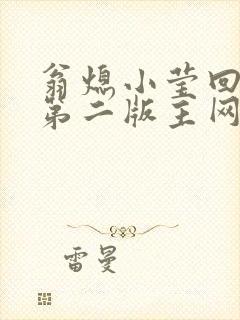 翁熄小莹回
第二版主网
雷曼